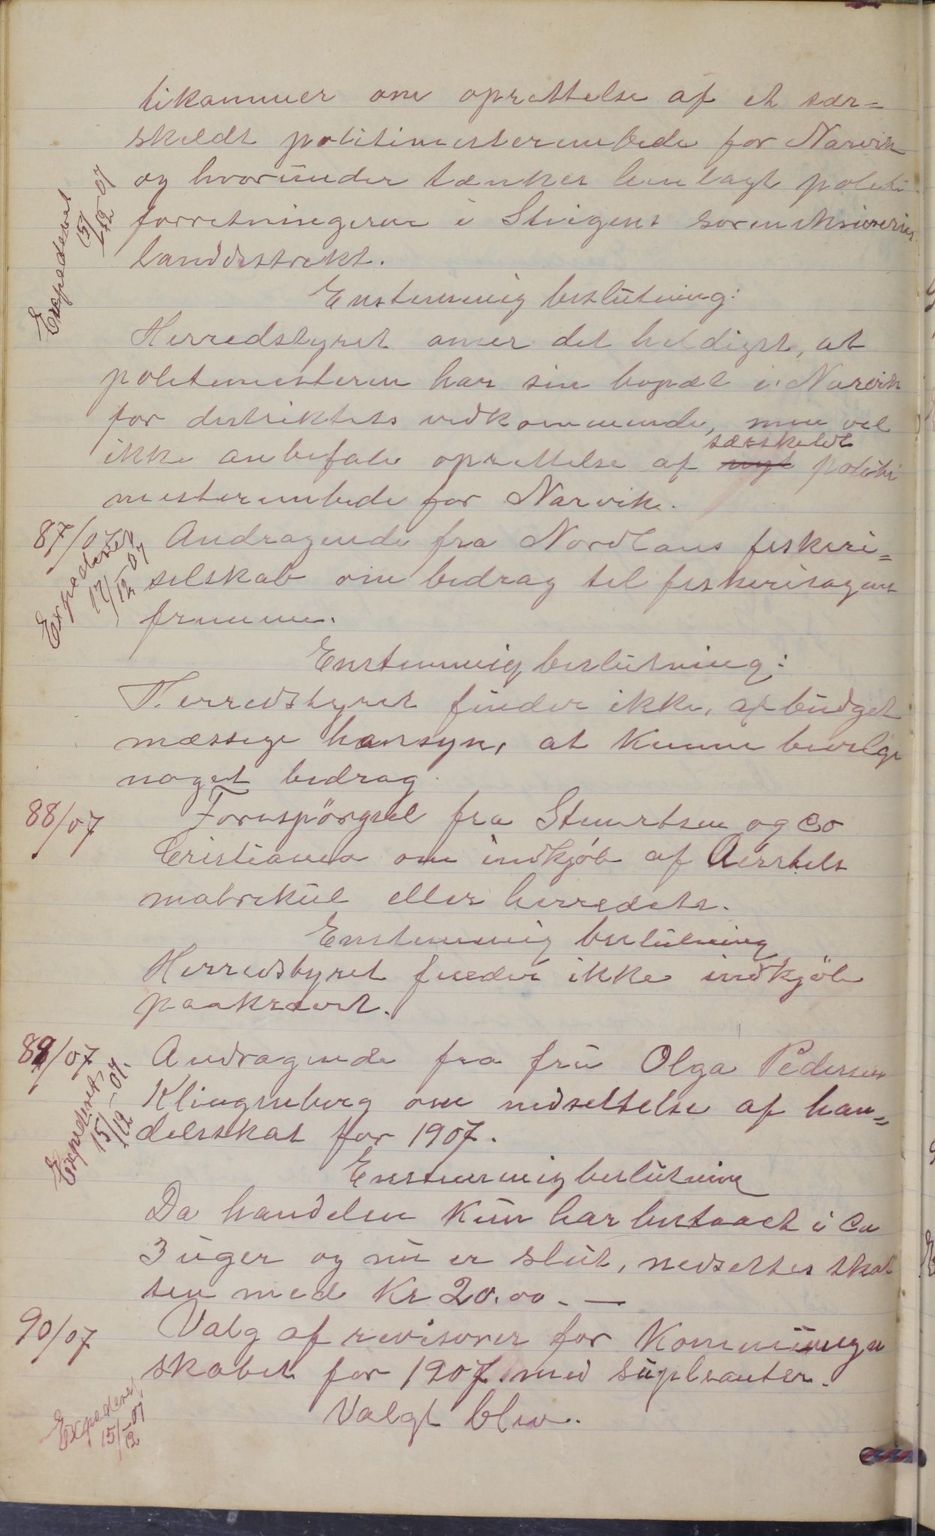 tikammer om oprettelse af et sær=
skeldt politimesterembede for Narvik
og hvorunder tænkes henlagt politi
forretningerne i Steigens sorenskriveries
landdistrikt.
Expederet
15/12-07
Enstemmig beslutning:
Herredstyret anser det heldigst, at
politimesteren har sin bopæl i Narvik
for distriktets vedkommende, men vil
ikke anbefale oprettelse af nyt særskeldt politi
mesterembede for Narvik.
87/07 Andragende fra Nordlans fiskeri=
selskab om bedrag til fiskerisagens
fremme.
Expederet
17/12-07
Enstemmig beslutning:
Herredstyret finder ikke, af budget
mæssige hansyn, at kunne bevilge
noget bedrag.
88/07 Forespörgsel fra Steen og Co
Cristiania om indkjöb af
matrekul eller herredets.
Enstemmig beslutning
Herredstyret finder ikke indkjöb
paakrævet.
89/07 Andragende fra frü Olga Pedersen
Klingenberg om nedsettelse af han=
delsskat for 1907.
Expederet
15/12-07.
Enstemmig beslutning
Da handelen kün har bestaaet i ca
3 üger og nü er slüt, nedsettes skat
ten med Kr 20.00. —
90/07 Valg af revisorer for Kommüneregn
skabet for 1907 med süpleanter.
Expederet
15/12-07
Valgt blev.